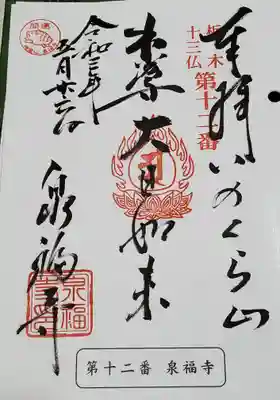 奉拝 いのくら山
栃木
十三仏
第十二番
本尊 大日如来
令和三年
五月廿二日
泉福寺
泉福寺
第十二番 泉福寺